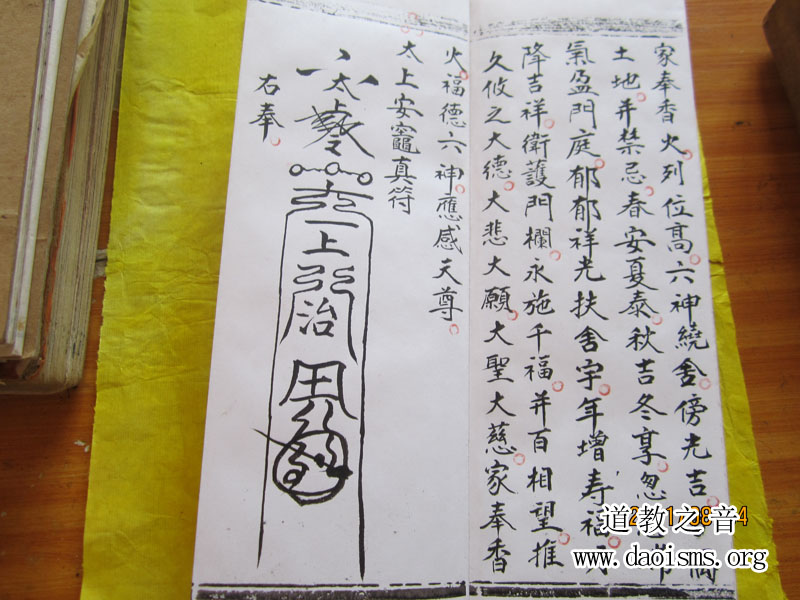 家奉香火列位高。六神繞舍傍光吉。
土地并禁忌。春安夏泰秋吉冬享。忽
氣盈門庭。郁郁祥光扶舍宇。年增寿福
降吉祥。衛護門欄。永施千福。并百相望推
久攸之大德。大悲大願。大聖大慈。家奉香
火。福德六神。應感天尊。
太上安竈真符
太
上
治
右奉。
道教之音
www.daoisms.org